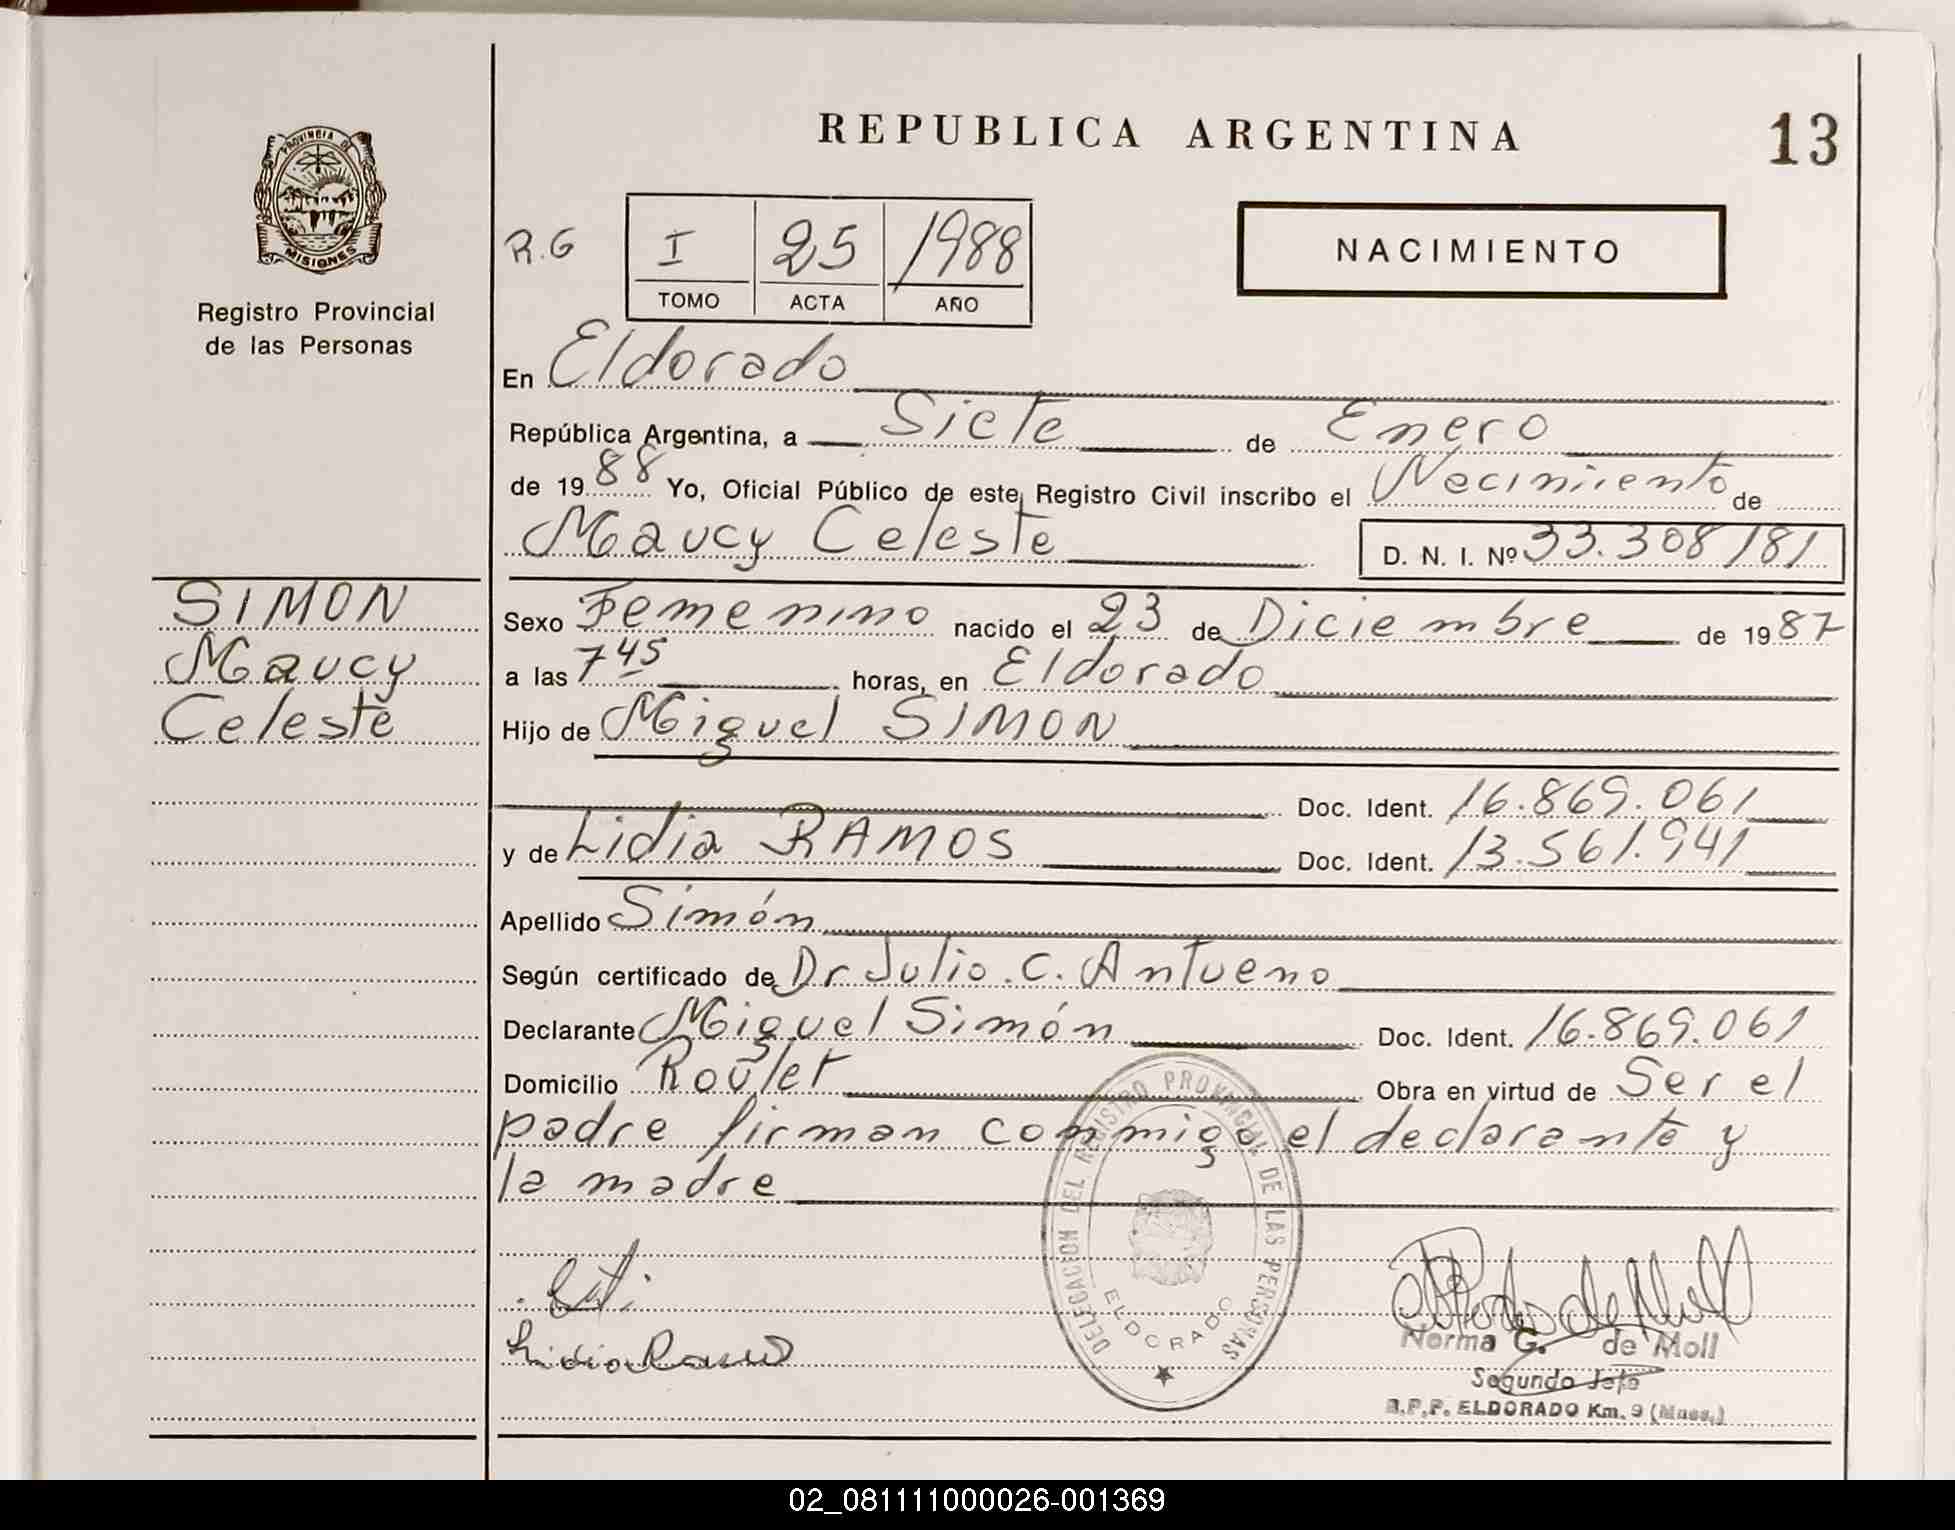 REPUBLICA ARGENTINA
13
PROVINCIA DE
MISIONES
Registro Provincial
de las Personas
R.G
I
25
1988
TOMO
ACTA
AÑO
NACIMIENTO
En Eldorado
República Argentina, a Siete de Enero
de 1988 Yo, Oficial Público de este Registro Civil inscribo el Nacimiento de
Maucy Celeste
D. N. I. Nº 33.308181
SIMON
Maucy
Celeste
Sexo Femenino nacido el 23 de Diciembre de 1987
a las 7 45 horas, en Eldorado
Hijo de Miguel SIMON
Doc. Ident. 16.869.061
y de Lidia RAMOS Doc. Ident. 13.561.941
Apellido Simón
Según certificado de Dr Julio. C. Antueno
Declarante Miguel Simón Doc. Ident. 16.869.061
Domicilio Roulet Obra en virtud de Ser el
padre firman conmigo el declarante y
la madre
DELEGACION DEL REGISTRO PROVINCIAL DE LAS PERSONAS
ELDORADO
Lidia Ramos
Norma G. de Moll
Segundo Jefe
R.P.P. ELDORADO Km. 9 (Mnes.)
02_081111000026-001369